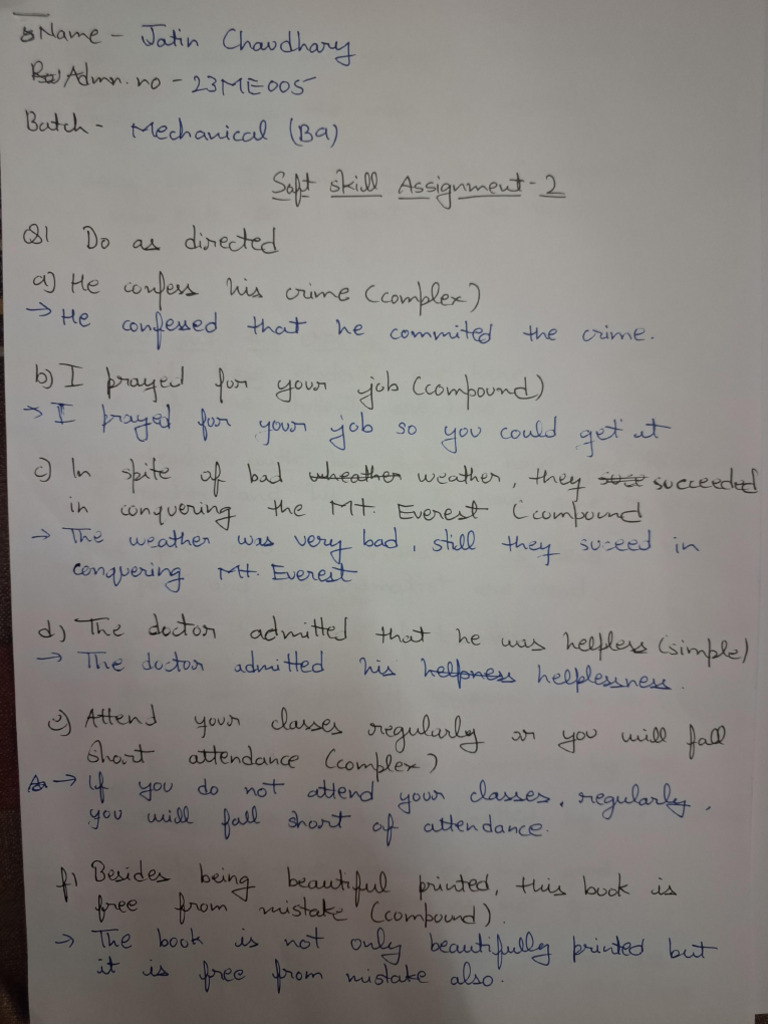 Name - Jatin Chaudhary
Admn. no - 23ME005
Batch - Mechanical (B9)
Soft skill Assignment - 2
Q1 Do as directed
a) He confess his crime (complex)
→ He confessed that he commited the crime.
b) I prayed for your job (compound)
→ I prayed for your job so you could get it
c) In spite of bad wheather weather, they succeeded
in conquering the Mt. Everest (compound
→ The weather was very bad, still they suceed in
conquering Mt. Everest
d) The doctor admitted that he was helpless (simple)
→ The doctor admitted his helpness helplessness.
e) Attend your classes regularly or you will fall
short attendance (complex)
→ If you do not attend your classes, regularly,
you will fall short of attendance.
f) Besides being beautiful printed, this book is
free from mistake (compound).
→ The book is not only beautifully printed but
it is free from mistake also.